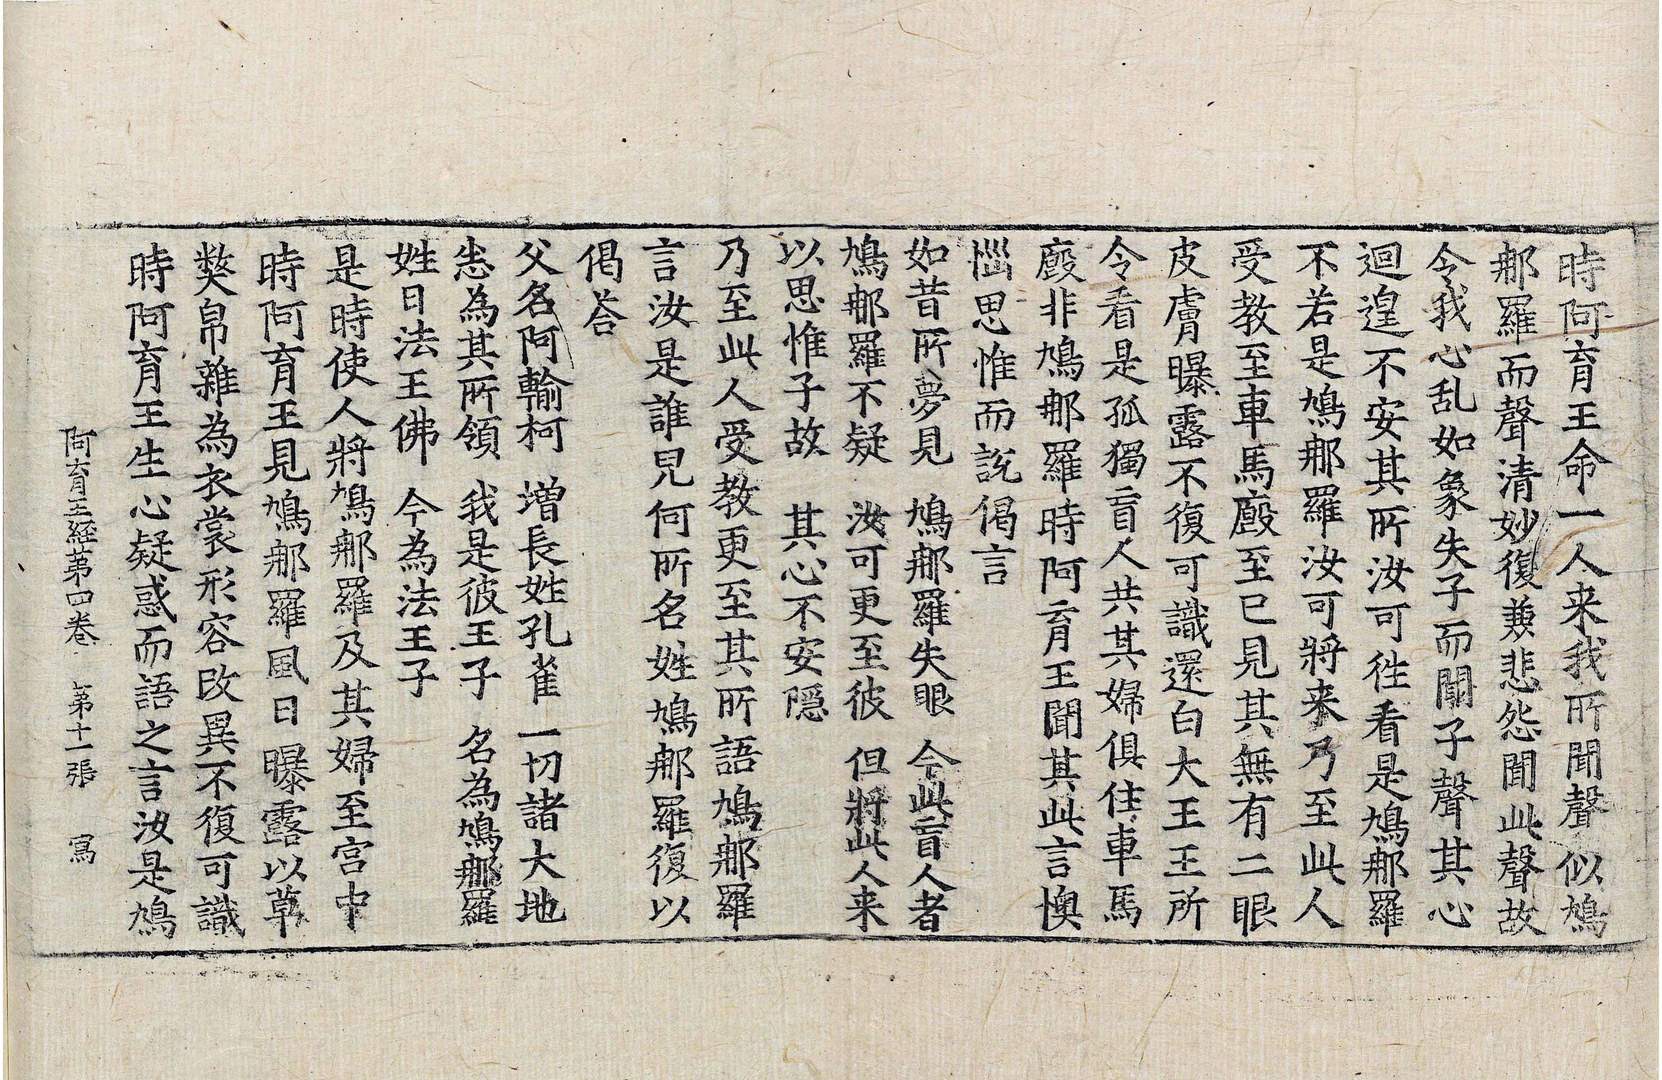 時阿育王命一人来我所聞聲似鳩
郍羅而聲清妙復兼悲怨聞此聲故
令我心乱如象失子而聞子聲其心
迴遑不安其所汝可徃看是鳩郍羅
不若是鳩郍羅汝可將来乃至此人
受教至車馬廄至已見其無有二眼
皮膚曝露不復可識還白大王王所
令看是孤獨盲人共其婦俱住車馬
廄非鳩郍羅時阿育王聞其此言懊
惱思惟而說偈言
如昔所夢見　鳩郍羅失眼　今此盲人者
鳩郍羅不疑　汝可更至彼　但將此人来
以思惟子故　其心不安隱
乃至此人受教更至其所語鳩郍羅
言汝是誰兒何所名姓鳩郍羅復以
偈荅
父名阿輸柯　增長姓孔雀　一切諸大地
悉為其所領　我是彼王子　名為鳩郍羅
姓日法王佛　今為法王子
是時使人將鳩郍羅及其婦至宮中
時阿育王見鳩郍羅風日曝露以草
弊帛雜為衣裳形容改異不復可識
時阿育王生心疑惑而語之言汝是鳩
阿育王經第四卷　第十一張　寫